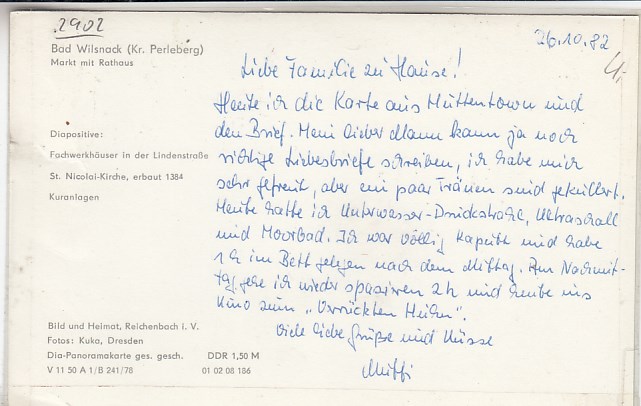 2902
Bad Wilsnack (Kr. Perleberg)
Markt mit Rathaus
Diapositive:
Fachwerkhäuser in der Lindenstraße
St. Nicolai-Kirche, erbaut 1384
Kuranlagen
Bild und Heimat, Reichenbach i. V.
Fotos: Kuka, Dresden
Dia-Panoramakarte ges. gesch. DDR 1,50 M
V 11 50 A 1/B 241/78 01 02 08 186
26.10.82
4,-
Liebe Familie zu Hause!
Heute ich die Karte aus Hüttentown und
den Brief. Mein lieber Mann kann ja noch
richtige Liebesbriefe schreiben, ich habe mich
sehr gefreut, aber ein paar Tränen sind gekullert.
Heute hatte ich Unterwasser-Druckstrahl, Ultraschall
und Moorbad. Ich war völlig kaputt und habe
1 h im Bett gelegen nach dem Mittag. Am Nachmit-
tag gehe ich wieder spazieren 2 h und heute ins
Kino zum „Verrückten
Viele liebe Grüße und Küsse